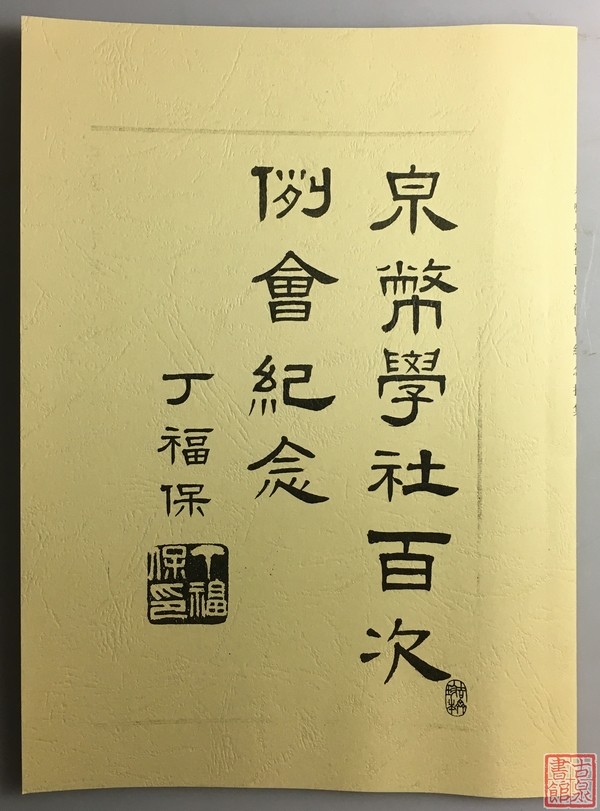 泉幣學社百次
例會紀念
丁福保
丁福保印
古泉書館